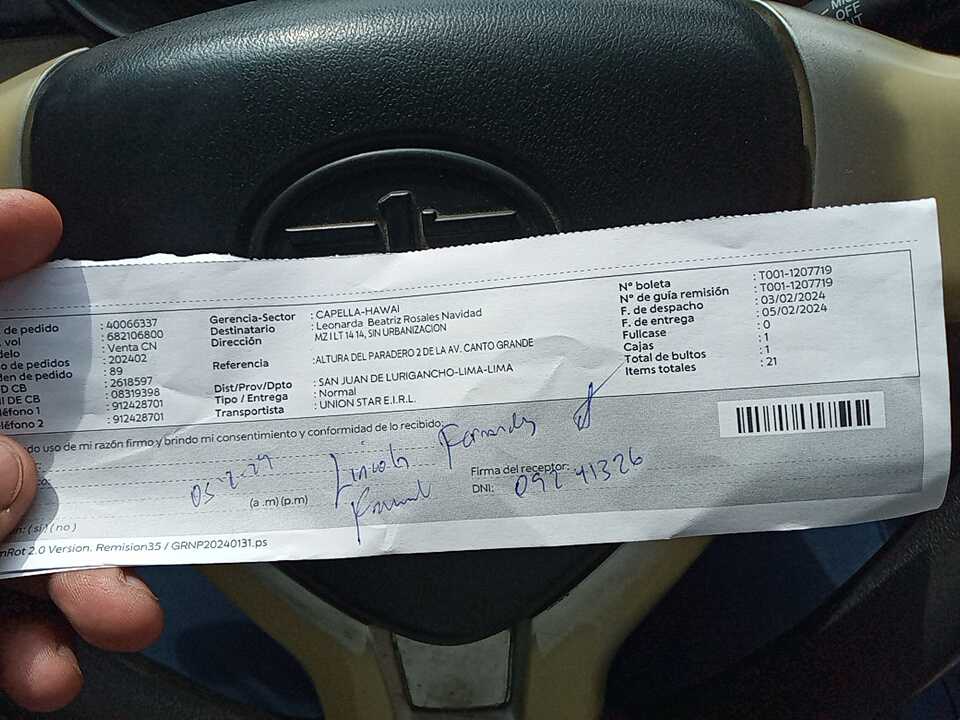 de pedido : 40066337
vol : 682106800
delo : Venta CN
o de pedidos : 202402
den de pedido : 89
D CB : 2618597
NI DE CB : 08319398
léfono 1 : 912428701
léfono 2 : 912428701
Gerencia-Sector : CAPELLA-HAWAI
Destinatario : Leonarda Beatriz Rosales Navidad
Dirección MZ I LT 14 14, SIN URBANIZACION
Referencia : ALTURA DEL PARADERO 2 DE LA AV. CANTO GRANDE
Dist/Prov/Dpto : SAN JUAN DE LURIGANCHO-LIMA-LIMA
Tipo / Entrega : Normal
Transportista : UNION STAR E.I.R.L.
Nº boleta : T001-1207719
Nº de guía remisión : T001-1207719
F. de despacho : 03/02/2024
F. de entrega : 05/02/2024
Fullcase : 0
Cajas : 1
Total de bultos : 1
Items totales : 21
do uso de mi razón firmo y brindo mi consentimiento y conformidad de lo recibido:
05-2-24 (a .m) (p.m) Lincoln Fernandez
Firma del receptor:
DNI: 09241326
n: ( si ) ( no )
nRot 2.0 Version. Remision35 / GRNP20240131.ps
OFF